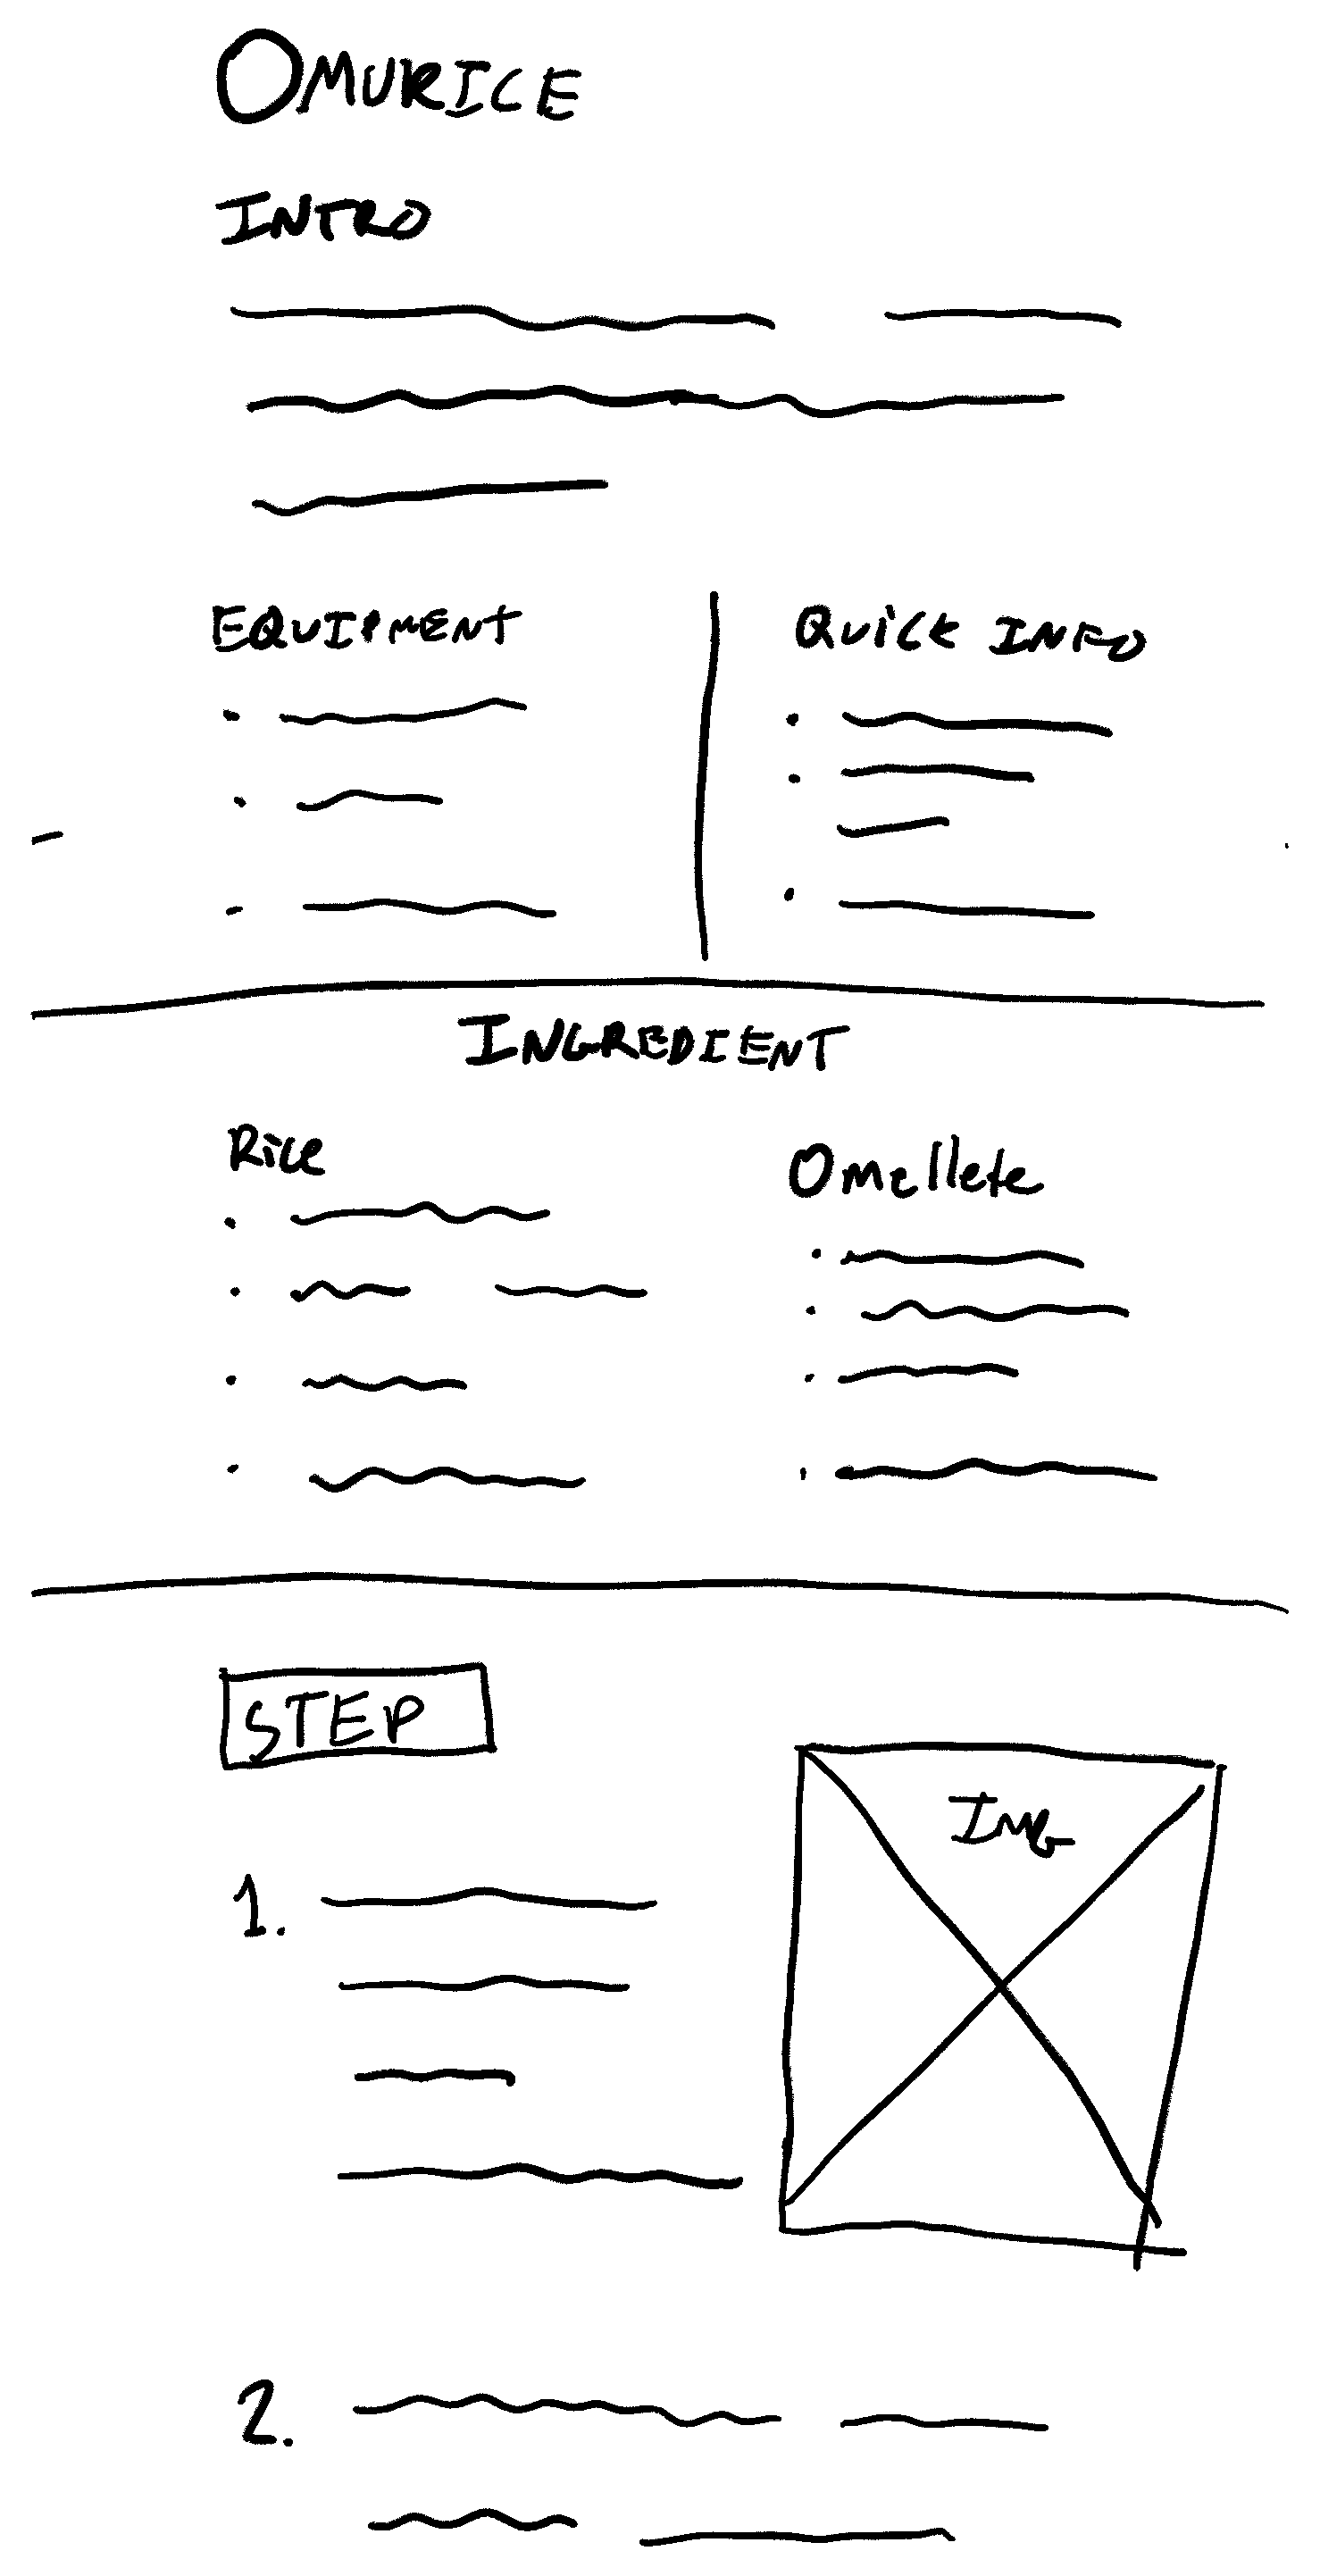 OMURICE
INTRO
EQUIPMENT
QUICK INFO
INGREDIENT
Rice
Omellete
STEP
Img
1.
2.